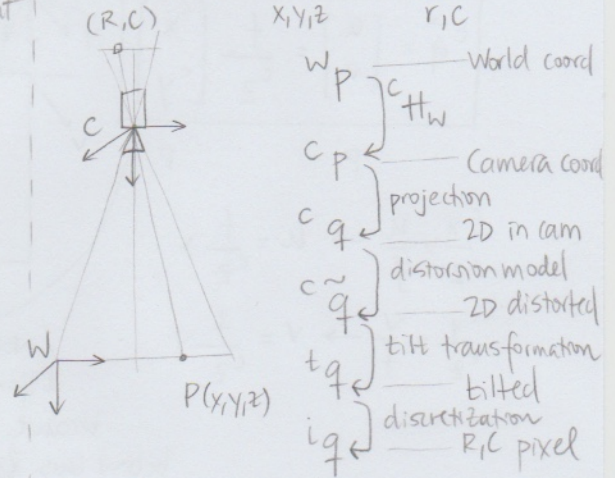 (R,C) x,y,z r,c
W P World coord
C H W
C
C P Camera coord
projection
C q 2D in cam
distorsion model
C q̃ 2D distorted
W
tilt transformation
t q tilted
P(x,y,z)
discretization
i q R,C pixel